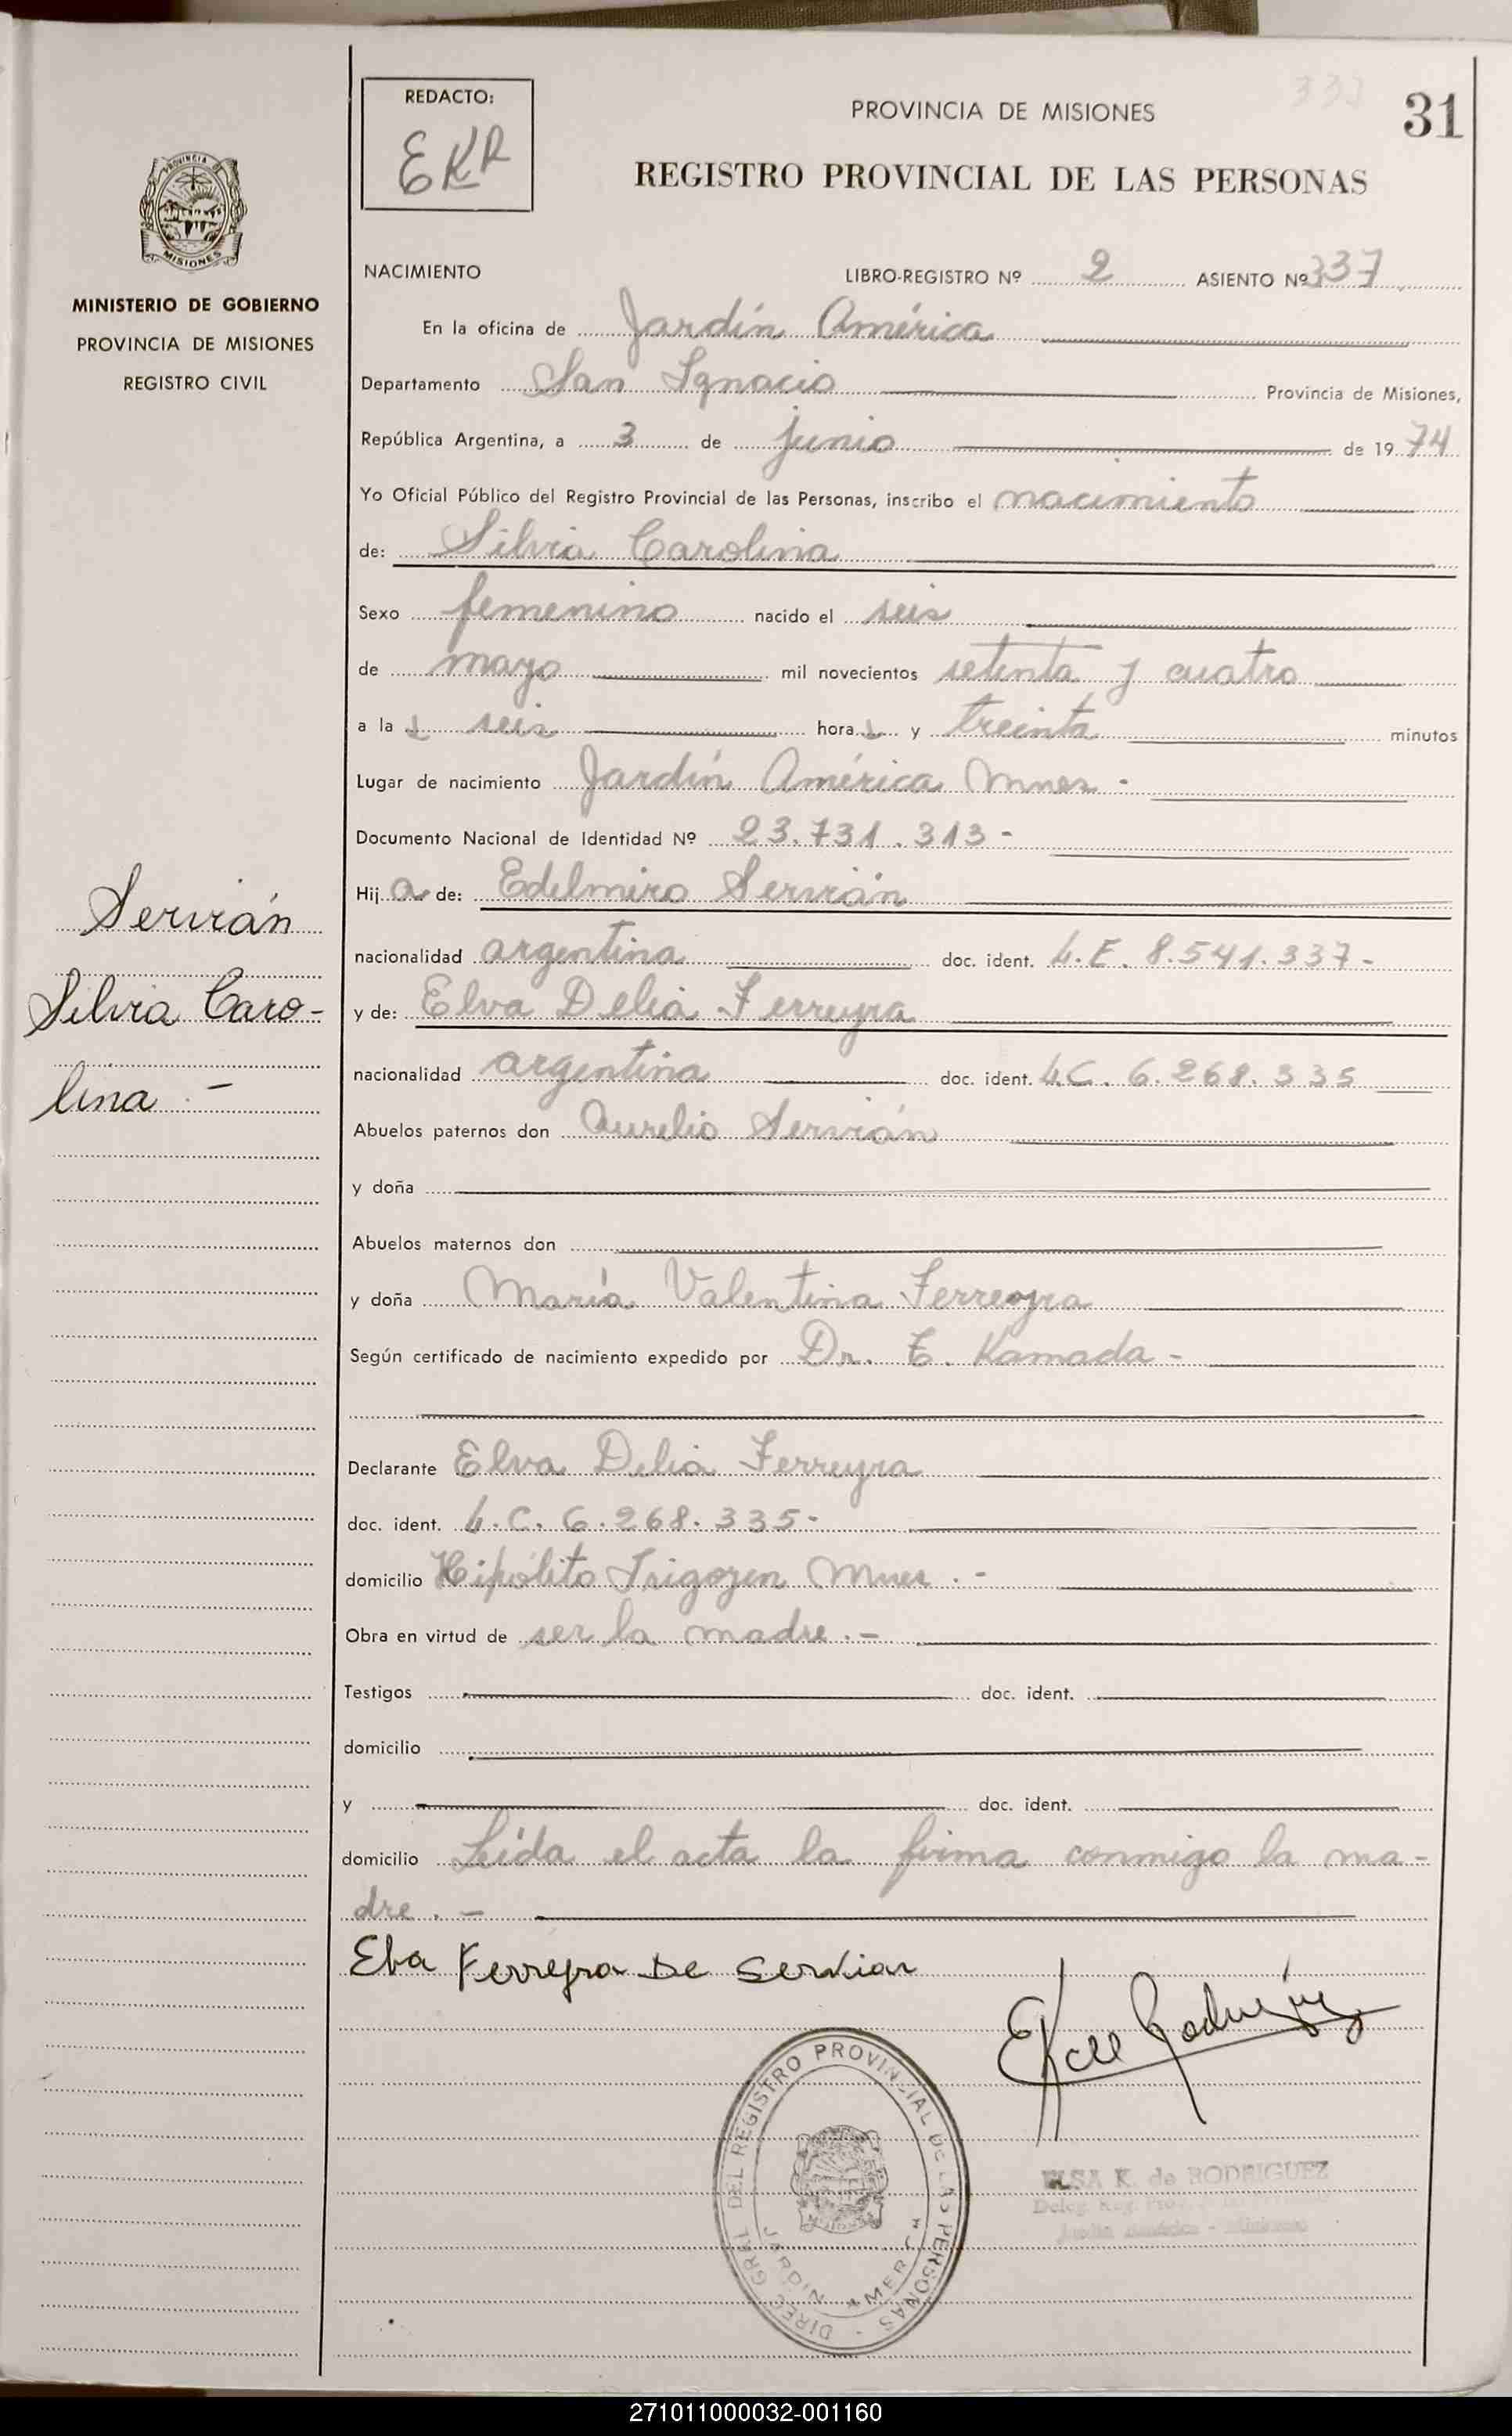 REDACTO:
EKR
PROVINCIA DE MISIONES
31
REGISTRO PROVINCIAL DE LAS PERSONAS
PROVINCIA
MISIONES
MINISTERIO DE GOBIERNO
PROVINCIA DE MISIONES
REGISTRO CIVIL
NACIMIENTO LIBRO-REGISTRO Nº 2 ASIENTO Nº 337
En la oficina de Jardín América
Departamento San Ignacio Provincia de Misiones,
República Argentina, a 3 de junio de 1974
Yo Oficial Público del Registro Provincial de las Personas, inscribo el nacimiento
de: Silvia Carolina
Sexo femenino nacido el seis
de mayo mil novecientos setenta y cuatro
a las seis horas y treinta minutos
Lugar de nacimiento Jardín América Mnes -
Documento Nacional de Identidad Nº 23.731.313-
Hija de: Edelmiro Servián
nacionalidad argentina doc. ident. L.E. 8.541.337-
y de: Elva Delia Ferreyra
nacionalidad argentina doc. ident. L.C. 6.268.335
Abuelos paternos don Aurelio Servián
y doña
Abuelos maternos don
y doña María Valentina Ferreyra
Según certificado de nacimiento expedido por Dr. E. Kamada -
Declarante Elva Delia Ferreyra
doc. ident. L.C. 6.268.335-
domicilio Hipólito Irigoyen Mnes . -
Obra en virtud de ser la madre . -
Testigos doc. ident.
domicilio
y doc. ident.
domicilio Leída el acta la firma conmigo la ma-
dre . -
Servián
Silvia Caro-
lina . -
Elva Ferreyra De Servian
EKde Rodriguez
DIREC. GRAL. DEL REGISTRO PROVINCIAL DE LAS PERSONAS
JARDIN AMERICA
ELSA K. de RODRIGUEZ
271011000032-001160